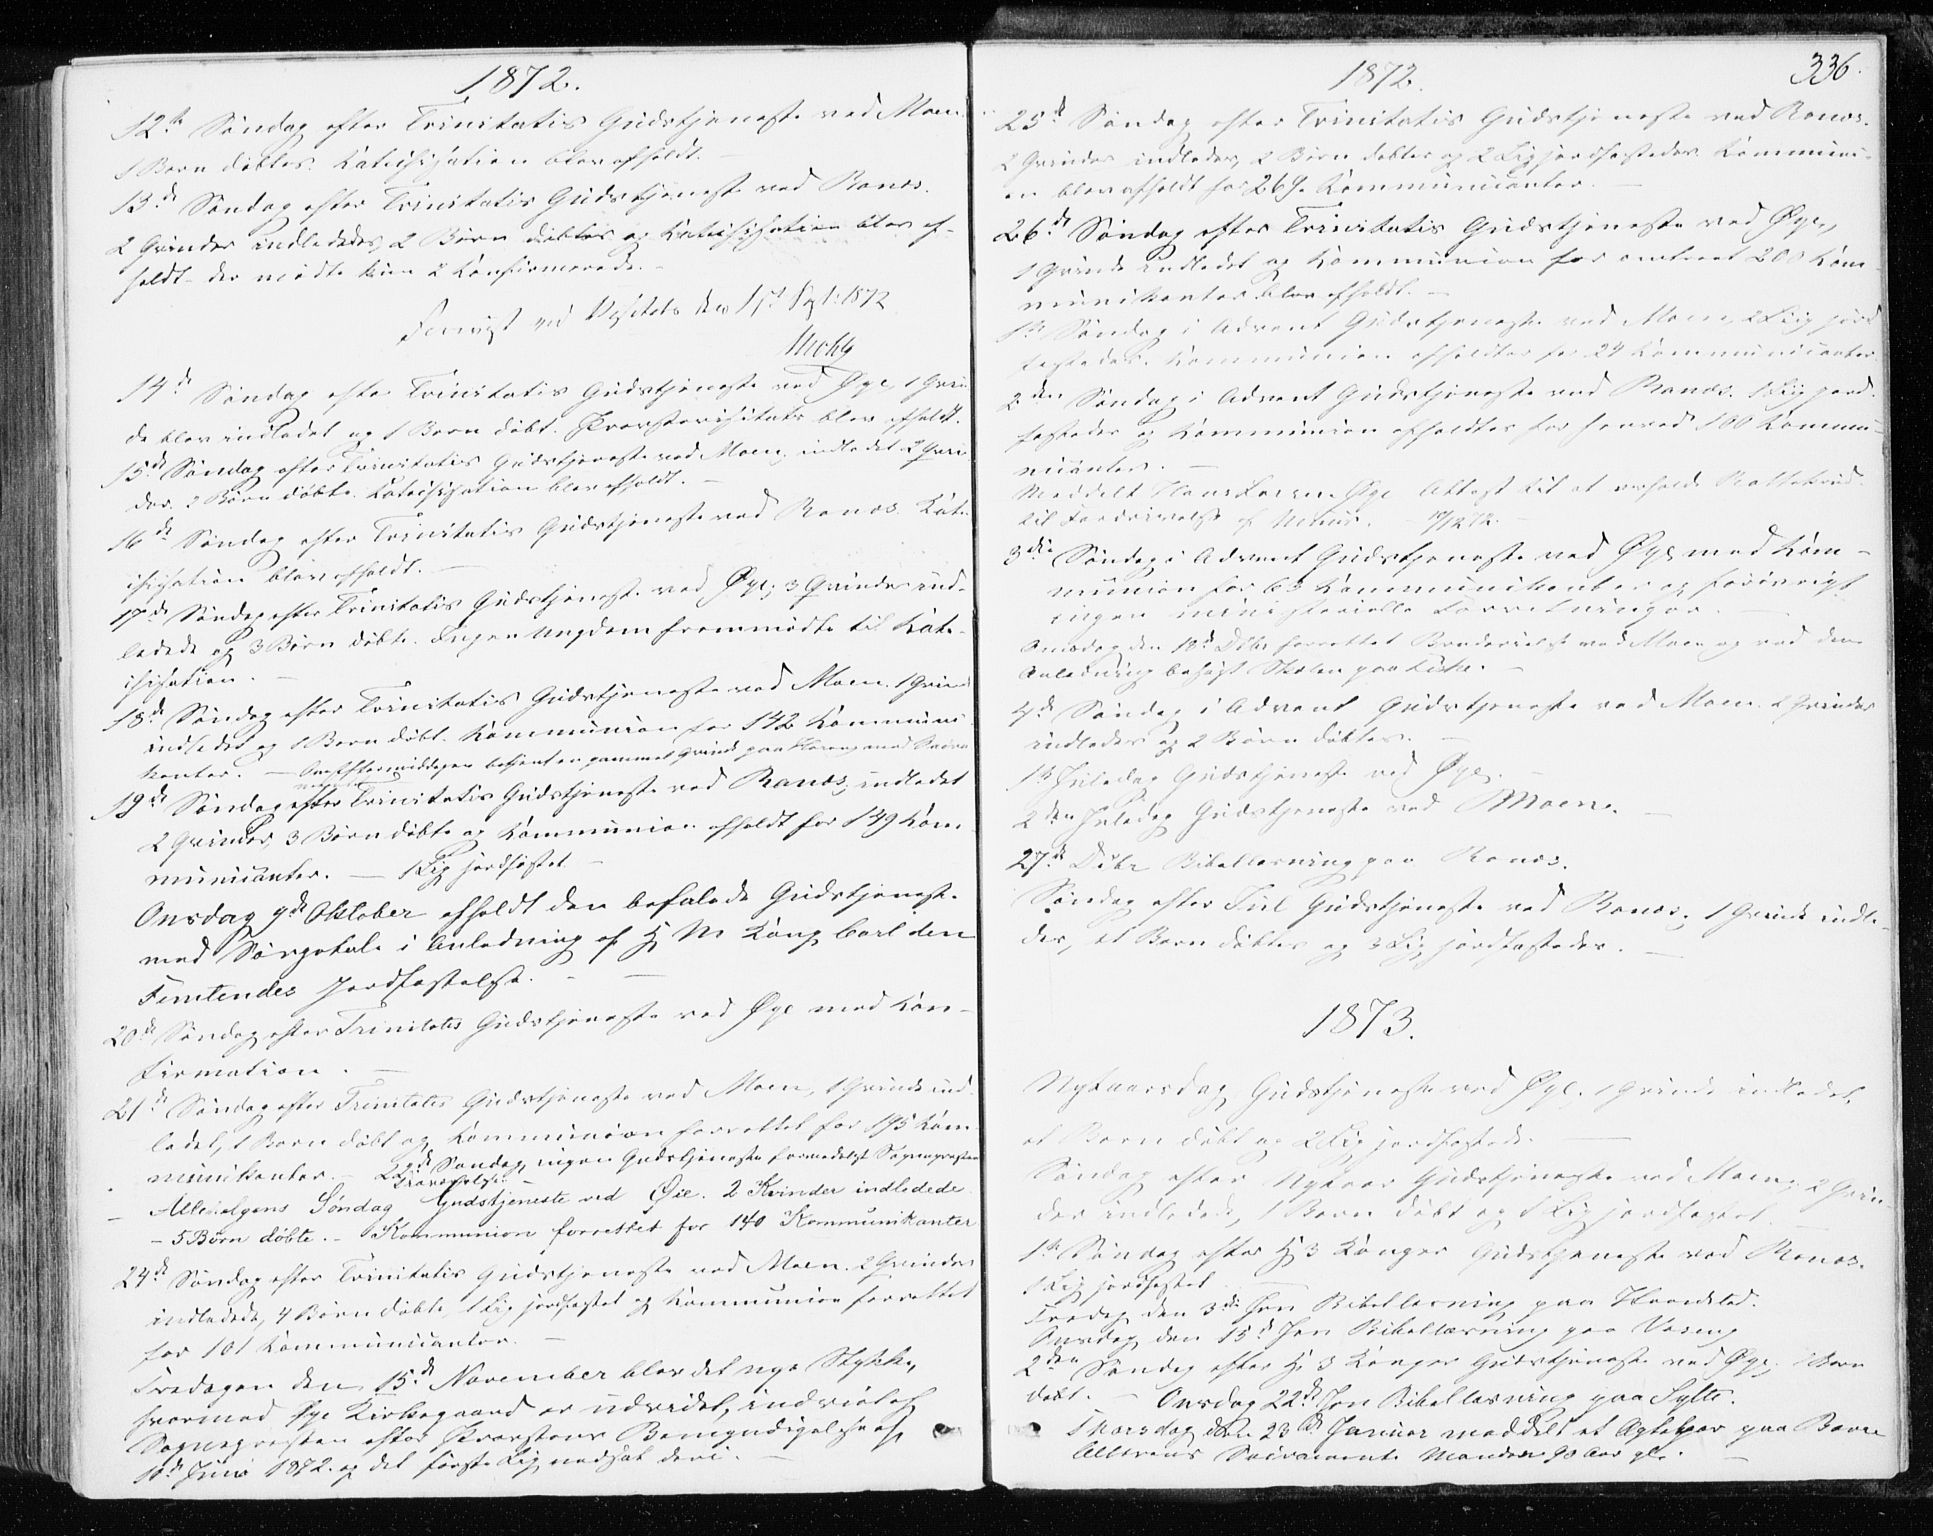 1872.
12te Søndag efter Trinitatis Gudstjeneste ved Moen
1 Barn døbtes. Katechisation blev afholdt.
13de Søndag efter Trinitatis Gudstjeneste ved Ranes.
2 Qvinder indledede, 2 Børn døbtes og Katechisation blev af-
holdt der mødte kun 2 Konfirmerede.
ved Visitats den 1ste Sept: 1872
14de Søndag efter Trinitatis Gudstjeneste ved Øye, 1 Qvin-
de blev indledet og 1 Barn døbt. Provstevisitats blev afholdt.
15de Søndag efter Trinitatis Gudstjeneste ved Moen, indledet 2 Qvin-
der. 2 Børn døbte. Katechisation blev afholdt. -
16de Søndag efter Trinitatis Gudstjeneste ved Ranes. Kate-
chisation blev afholdt. -
17de Søndag efter Trinitatis Gudstjeneste ved Øye; 3 Qvinder ind-
ledede og 3 Børn døbte. Ingen Ungdom fremmødte til Kate-
chisation. -
18de Søndag efter Trinitatis Gudstjeneste ved Moen. 1 Qvinde
indledet og 1 Barn døbt. Kommunion for 142 Kommuni-
kanter. - Om Eftermiddagen en gammel Qvinde paa med
19de Søndag efter Trinitatis Gudstjeneste ved Ranes, indledet
2 Qvinder, 3 Børn døbte og Kommunion afholdt for 149 Kom-
municanter. - 1 Lig jordfæstet -
Onsdag 9de Oktober afholdt den befalede Gudstjeneste
med Sørgetale i Anledning af Hs M Kong Carl den
Femtendes Jordfæstelse. -
20de Søndag efter Trinitatis Gudstjeneste ved Øye med Kon-
firmation. -
21de Søndag efter Trinitatis Gudstjeneste ved Moen, 1 Qvinde ind-
ledet, 1 Barn døbt og Kommunion forrettet for 195 Kom-
munikanter. - 22de Søndag ingen Gudstjeneste formedelst Sognepræstens
Fraværelse. -
- Allehelgens Søndag Gudstjeneste ved Øie. 2 Kvinder indledede
- 5 Børn døbte. - Kommunion forrettet for 140 Kommunikanter
24de Søndag efter Trinitatis Gudstjeneste ved Moen. 2 Qvinder
indledede, 4 Børn døbte, 1 Lig jordfæstet og Kommunion forrettet
for 101 Kommunicanter. -
Fredagen den 15de November blev det nye Stykke,
hvormed Øye Kirkegaard er udvidet, indviet af
Sognepresten efter Provstens Bemyndigelse af
10de Juni 1872. og det første Lig nedsat deri. -
336.
1872.
25de Søndag efter Trinitatis Gudstjeneste ved Ranes.
2 Qvinder indledes, 2 Børn døbtes og 2 Lig jordfæstedes. Kommuni-
on blev afholdt for 269 Kommunicanter. -
26de Søndag efter Trinitatis Gudstjeneste ved Øye,
1 Qvinde indledet og Kommunion for omtrent 200 Kom-
munikanter blev afholdt. -
1ste Søndag i Advent Gudstjeneste ved Moen, 2 Lig jord-
fæstedes. Kommunion afholdtes for 24 Kommunicanter.
2den Søndag i Advent Gudstjeneste ved Ranes. 1 Lig jord-
fæstedes og Kommunion afholdtes for henved 100 Kommu-
nicanter. -
Meddelt Hans Larsen Øye Attest til at erholde Rottekrud
til Fordrivelse af
3die Søndag i Advent Gudstjeneste ved Øye med Kom-
munion for 63 Kommunikanter og forøvrigt
ingen ministerielle Forretninger. -
Onsdag den 18de Dbr forrettet Brudevielse ved Moen og ved den
Anledning besøgt Skolen paa
4de Søndag i Advent Gudstjeneste ved Moen. 2 Qvinder
indledes og 2 Børn døbtes. -
1ste Juledag Gudstjeneste ved Øye. -
2den Juledag Gudstjeneste ved Moen. -
27de Debr Bibellæsning paa Ranes.
Søndag efter Juul Gudstjeneste ved Ranes. 1 Qvinde indle-
des, et Barn døbtes og 3 Lig jordfæstedes. -
1873.
Nytaarsdag Gudstjeneste ved Øye. 1 Qvinde indledet,
et Barn døbt og 2 Lig jordfæstede. -
Søndag efter Nytaar Gudstjeneste ved Moen, 2 Qvin-
der indledede, 1 Barn døbt og 1 Lig jordfæstet. -
1ste Søndag efter H 3 Konger Gudstjeneste ved Ranes.
1 Lig jordfæstet -
Fredag den 3die Jan Bibellæsning paa
Onsdag den 15de Jan Bibellæsning paa
2den Søndag efter H 3 Konger Gudstjeneste ved Øye, 1 Barn
døbt. - Onsdag 22de Jan Bibellæsning paa Sylte.
Thorsdag den 23de Januar meddelt et Ægtepar paa
Alterens Sacramente Manden 90 Aar gl. -